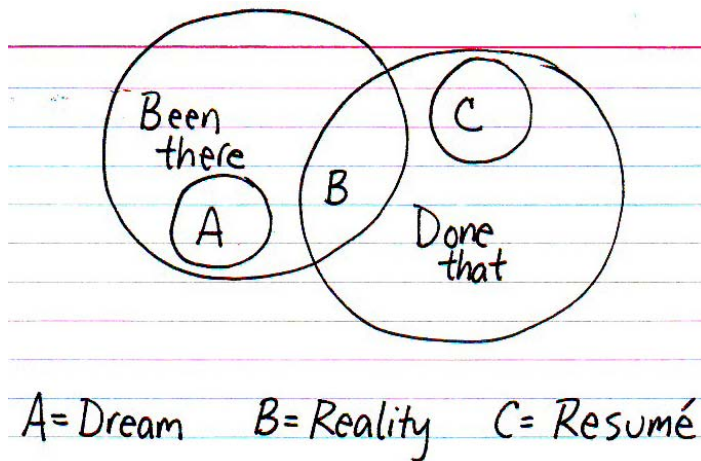 Been
there
A
B
C
Done
that
A=Dream B=Reality C=Resumé